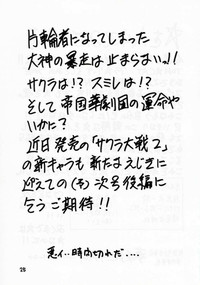 片輪者になってしまった
大神の暴走は止まらないっ!!
サクラは!? スミレは!?
そして帝国華劇団の運命や
いかに?
近日発売の「サクラ大戦2」
の新キャラも新たなえじきに
迎えての(そ)次号後編に
乞うご期待!!
悪イ..時間切れだ....
28